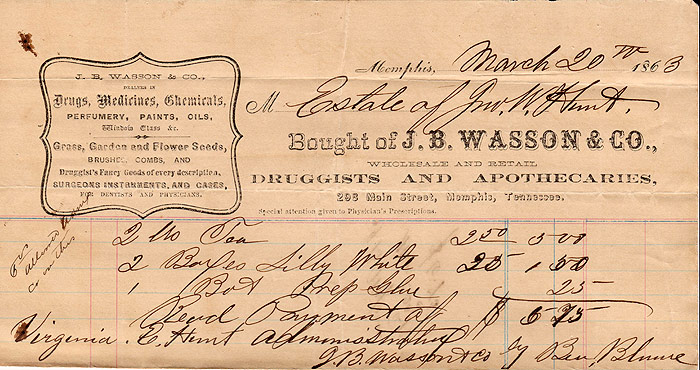 J. B. WASSON & CO.,
DEALERS IN
Drugs, Medicines, Chemicals,
PERFUMERY, PAINTS, OILS,
Window Glass &c.
Grass, Garden and Flower Seeds,
BRUSHES, COMBS, AND
Druggist's Fancy Goods of every description,
SURGEONS INSTRUMENTS, AND CASES,
FOR DENTISTS AND PHYSICIANS.
Memphis, March 20th 1863
M Estate of Jno. W. Hunt.
Bought of J. B. WASSON & CO.,
WHOLESALE AND RETAIL
DRUGGISTS AND APOTHECARIES,
298 Main Street, Memphis, Tennessee.
Special attention given to Physician's Prescriptions.
2 lbs Tea 250 5 00
2 Boxes Lilly White 25 50
1 Bot Prep Glue 25
Recd Payment of $ 6 75
Virginia E. Hunt administratrix
J. B. Wasson & Co by Ben Blume
allowed